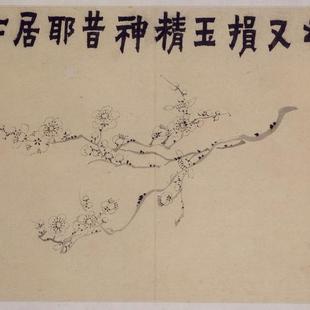 又損玉精神昔耶居